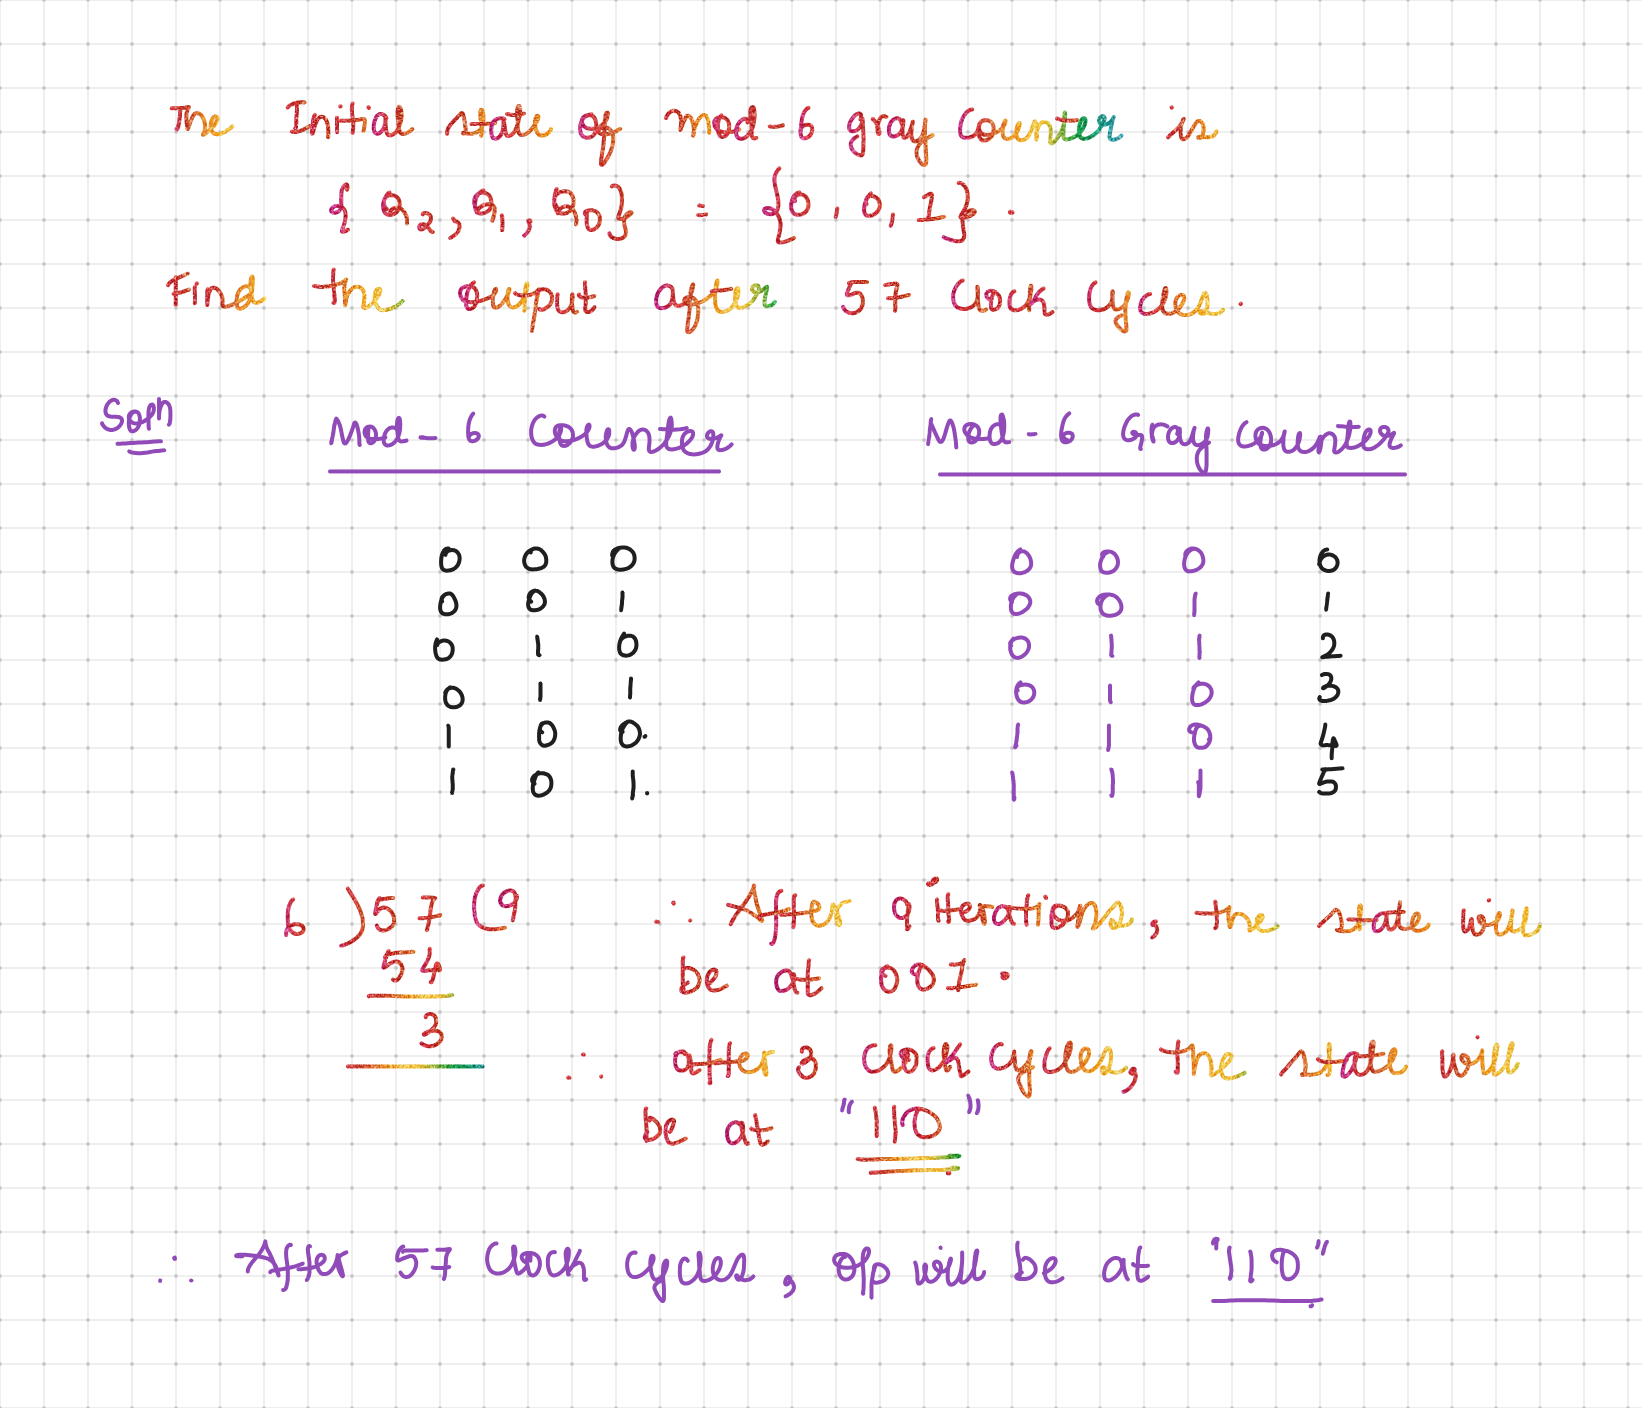 The Initial state of mod-6 gray counter is
{ Q2, Q1, Q0} = {0, 0, 1}.
Find the output after 57 Clock Cycles.
Soln
Mod-6 Counter Mod-6 Gray Counter
0 0 0 0 0 0 0
0 0 1 0 0 1 1
0 1 0 0 1 1 2
0 1 1 0 1 0 3
1 0 0. 1 1 0 4
1 0 1. 1 1 1 5
6 ) 57 ( 9 ∴ After 9 iterations, the state will
54 be at 001.
3 ∴ after 3 clock cycles, the state will
be at "110"
∴ After 57 Clock cycles, o/p will be at "110"